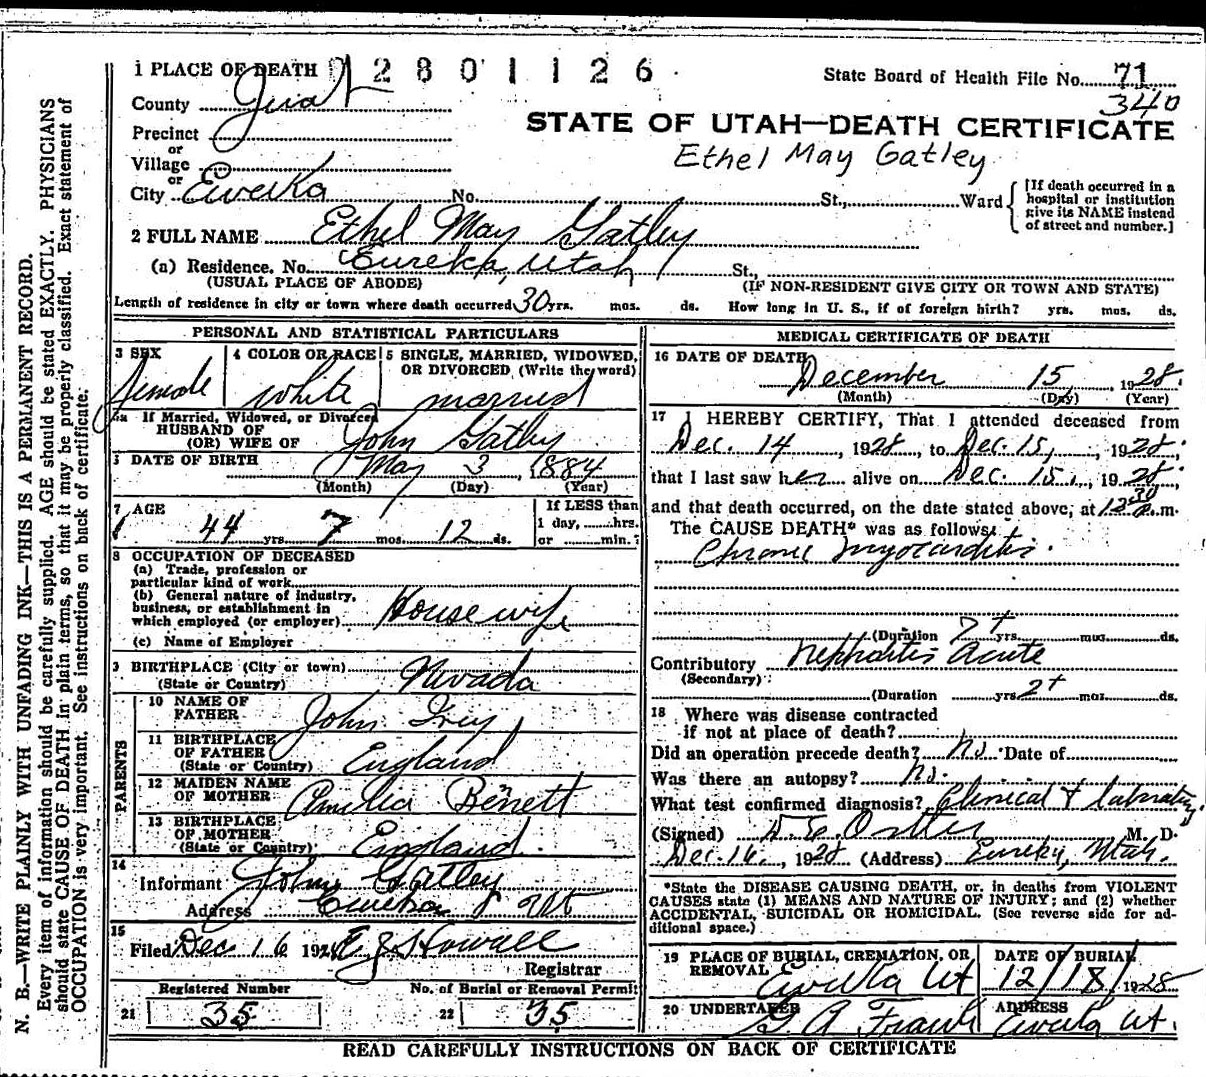 1 PLACE OF DEATH 2 8 0 1 1 2 6
State Board of Health File No. 71
340
County Juab
STATE OF UTAH—DEATH CERTIFICATE
Precinct
Ethel May Gatley
or
Village
or
City Eureka No. St., Ward
[If death occurred in a
hospital or institution
give its NAME instead
of street and number.]
2 FULL NAME Ethel May Gatley
(a) Residence. No. Eureka, Utah St.,
(USUAL PLACE OF ABODE) (IF NON-RESIDENT GIVE CITY OR TOWN AND STATE)
Length of residence in city or town where death occurred 30 yrs. mos. ds. How long in U. S., if of foreign birth? yrs. mos. ds.
PERSONAL AND STATISTICAL PARTICULARS
3 SEX
Female
4 COLOR OR RACE
white
5 SINGLE, MARRIED, WIDOWED,
OR DIVORCED, (Write the word)
married
5a If Married, Widowed, or Divorced
HUSBAND OF
(OR) WIFE OF John Gatley
6 DATE OF BIRTH May 3, 1884
(Month) (Day) (Year)
7 AGE
44 yrs. 7 mos. 12 ds.
If LESS than
1 day, hrs.
or min.?
8 OCCUPATION OF DECEASED
(a) Trade, profession or
particular kind of work
(b) General nature of industry,
business, or establishment in
which employed (or employer) Housewife
(c) Name of Employer
9 BIRTHPLACE (City or town)
(State or Country) Nevada
PARENTS
10 NAME OF
FATHER John Grey
11 BIRTHPLACE
OF FATHER
(State or Country) England
12 MAIDEN NAME
OF MOTHER Amelia Benett
13 BIRTHPLACE
OF MOTHER
(State or Country) England.
14
Informant John Gatley
Address Eureka Ut
15
Filed Dec 16 1928 E J Howell
Registrar
Registered Number No. of Burial or Removal Permit
21 35 22 35
MEDICAL CERTIFICATE OF DEATH
16 DATE OF DEATH
December 15, 1928.
(Month) (Day) (Year)
17 I HEREBY CERTIFY, That I attended deceased from
Dec. 14, 1928, to Dec. 15, 1928;
that I last saw her alive on Dec. 15, 1928;
and that death occurred, on the date stated above, at 12 30 m.
The CAUSE DEATH* was as follows:
Chronic myocarditis.
(Duration 2+ yrs. mos. ds.
Contributory Nephritis Acute
(Secondary)
(Duration yrs. 2+ mos. ds.
18 Where was disease contracted
if not at place of death?
Did an operation precede death? No. Date of
Was there an autopsy? No.
What test confirmed diagnosis? Clinical & laboratory.
(Signed) M. D.
Dec. 16., 1928 (Address) Eureka, Utah.
*State the DISEASE CAUSING DEATH, or, in deaths from VIOLENT
CAUSES state (1) MEANS AND NATURE OF INJURY; and (2) whether
ACCIDENTAL, SUICIDAL OR HOMICIDAL. (See reverse side for ad-
ditional space.)
19 PLACE OF BURIAL, CREMATION, OR
REMOVAL Eureka Ut
DATE OF BURIAL
12/18/1928
20 UNDERTAKER
ADDRESS
Eureka Ut.
READ CAREFULLY INSTRUCTIONS ON BACK OF CERTIFICATE
N. B.—WRITE PLAINLY WITH UNFADING INK—THIS IS A PERMANENT RECORD.
Every item of information should be carefully supplied. AGE should be stated EXACTLY. PHYSICIANS
should state CAUSE OF DEATH in plain terms, so that it may be properly classified. Exact statement of
OCCUPATION is very important. See instructions on back of certificate.